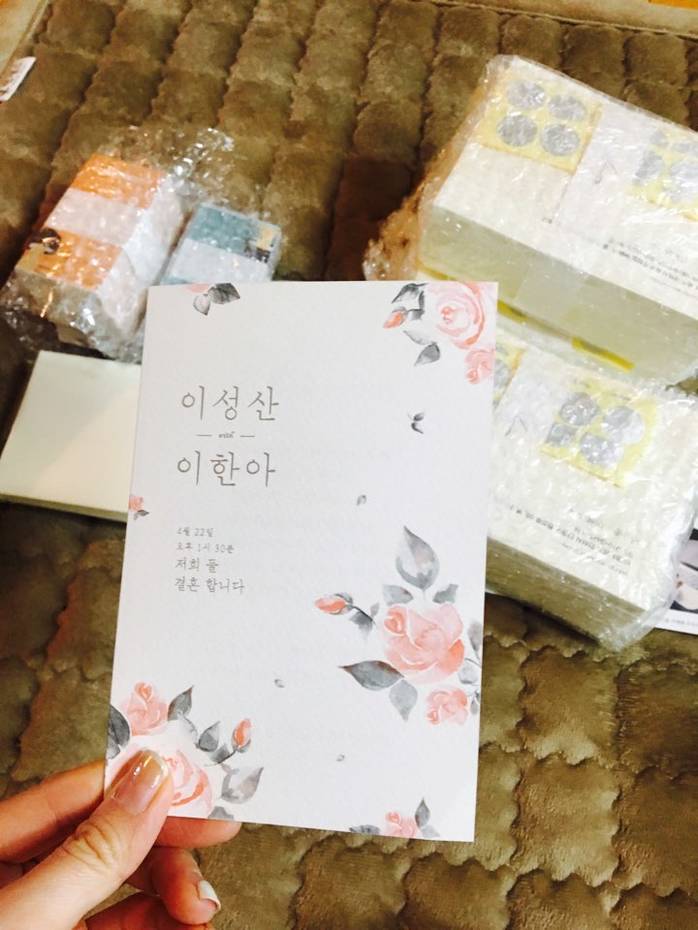 이성산
with
이한아
4월 22일
오후 1시 30분
저희 둘
결혼 합니다